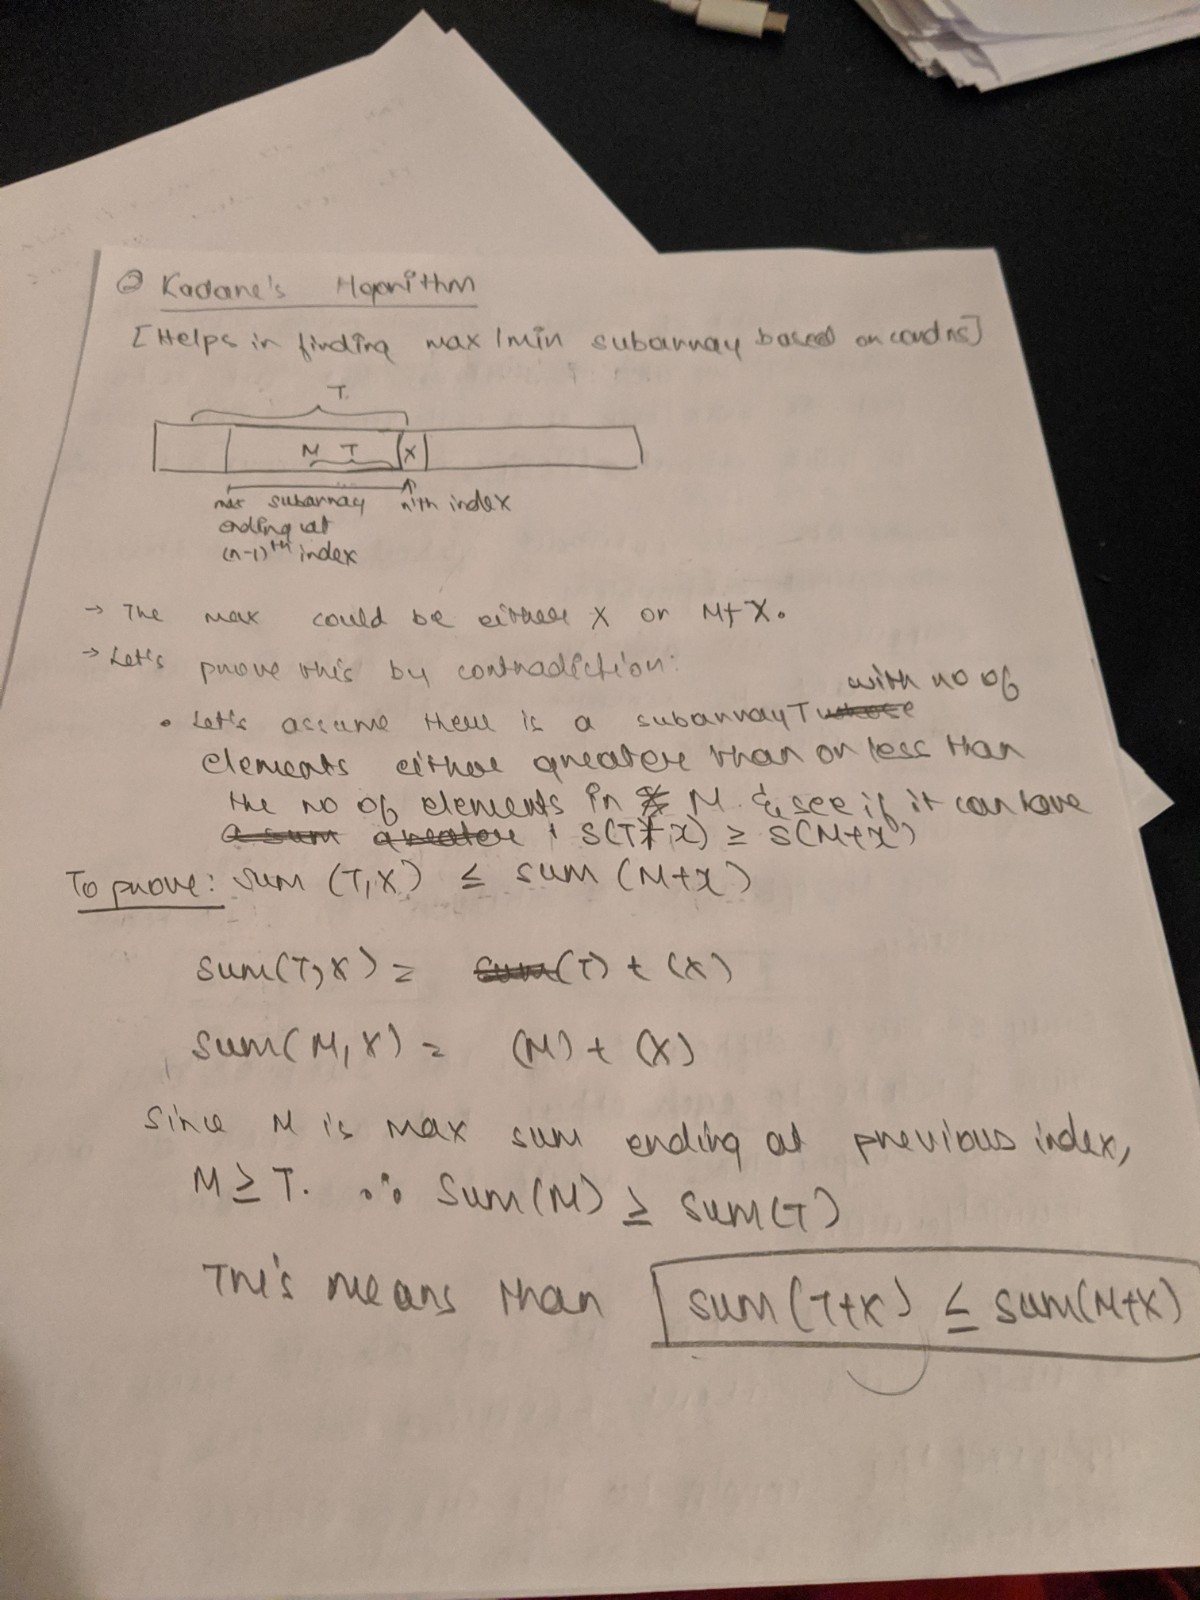 ② Kadane's Algorithm
[Helps in finding max/min subarray based on condns]
T.
M T X
max subarray nth index
ending at
(n-1)th index
→ The max could be either X or M+X.
→ Let's prove this by contradiction:
with no of
• Let's assume there is a subarray T whose
elements either greater than or less than
the no of elements in M & see if it can have
a sum greater S(T+X) ≥ S(M+X)
To prove: sum (T,X) ≤ sum (M+X)
Sum(T,X) = sum(T) + (X)
Sum(M,X) = (M) + (X)
Since M is max sum ending at previous index,
M ≥ T. ∴ Sum(M) ≥ sum(T)
This means than sum(T+X) ≤ sum(M+X)